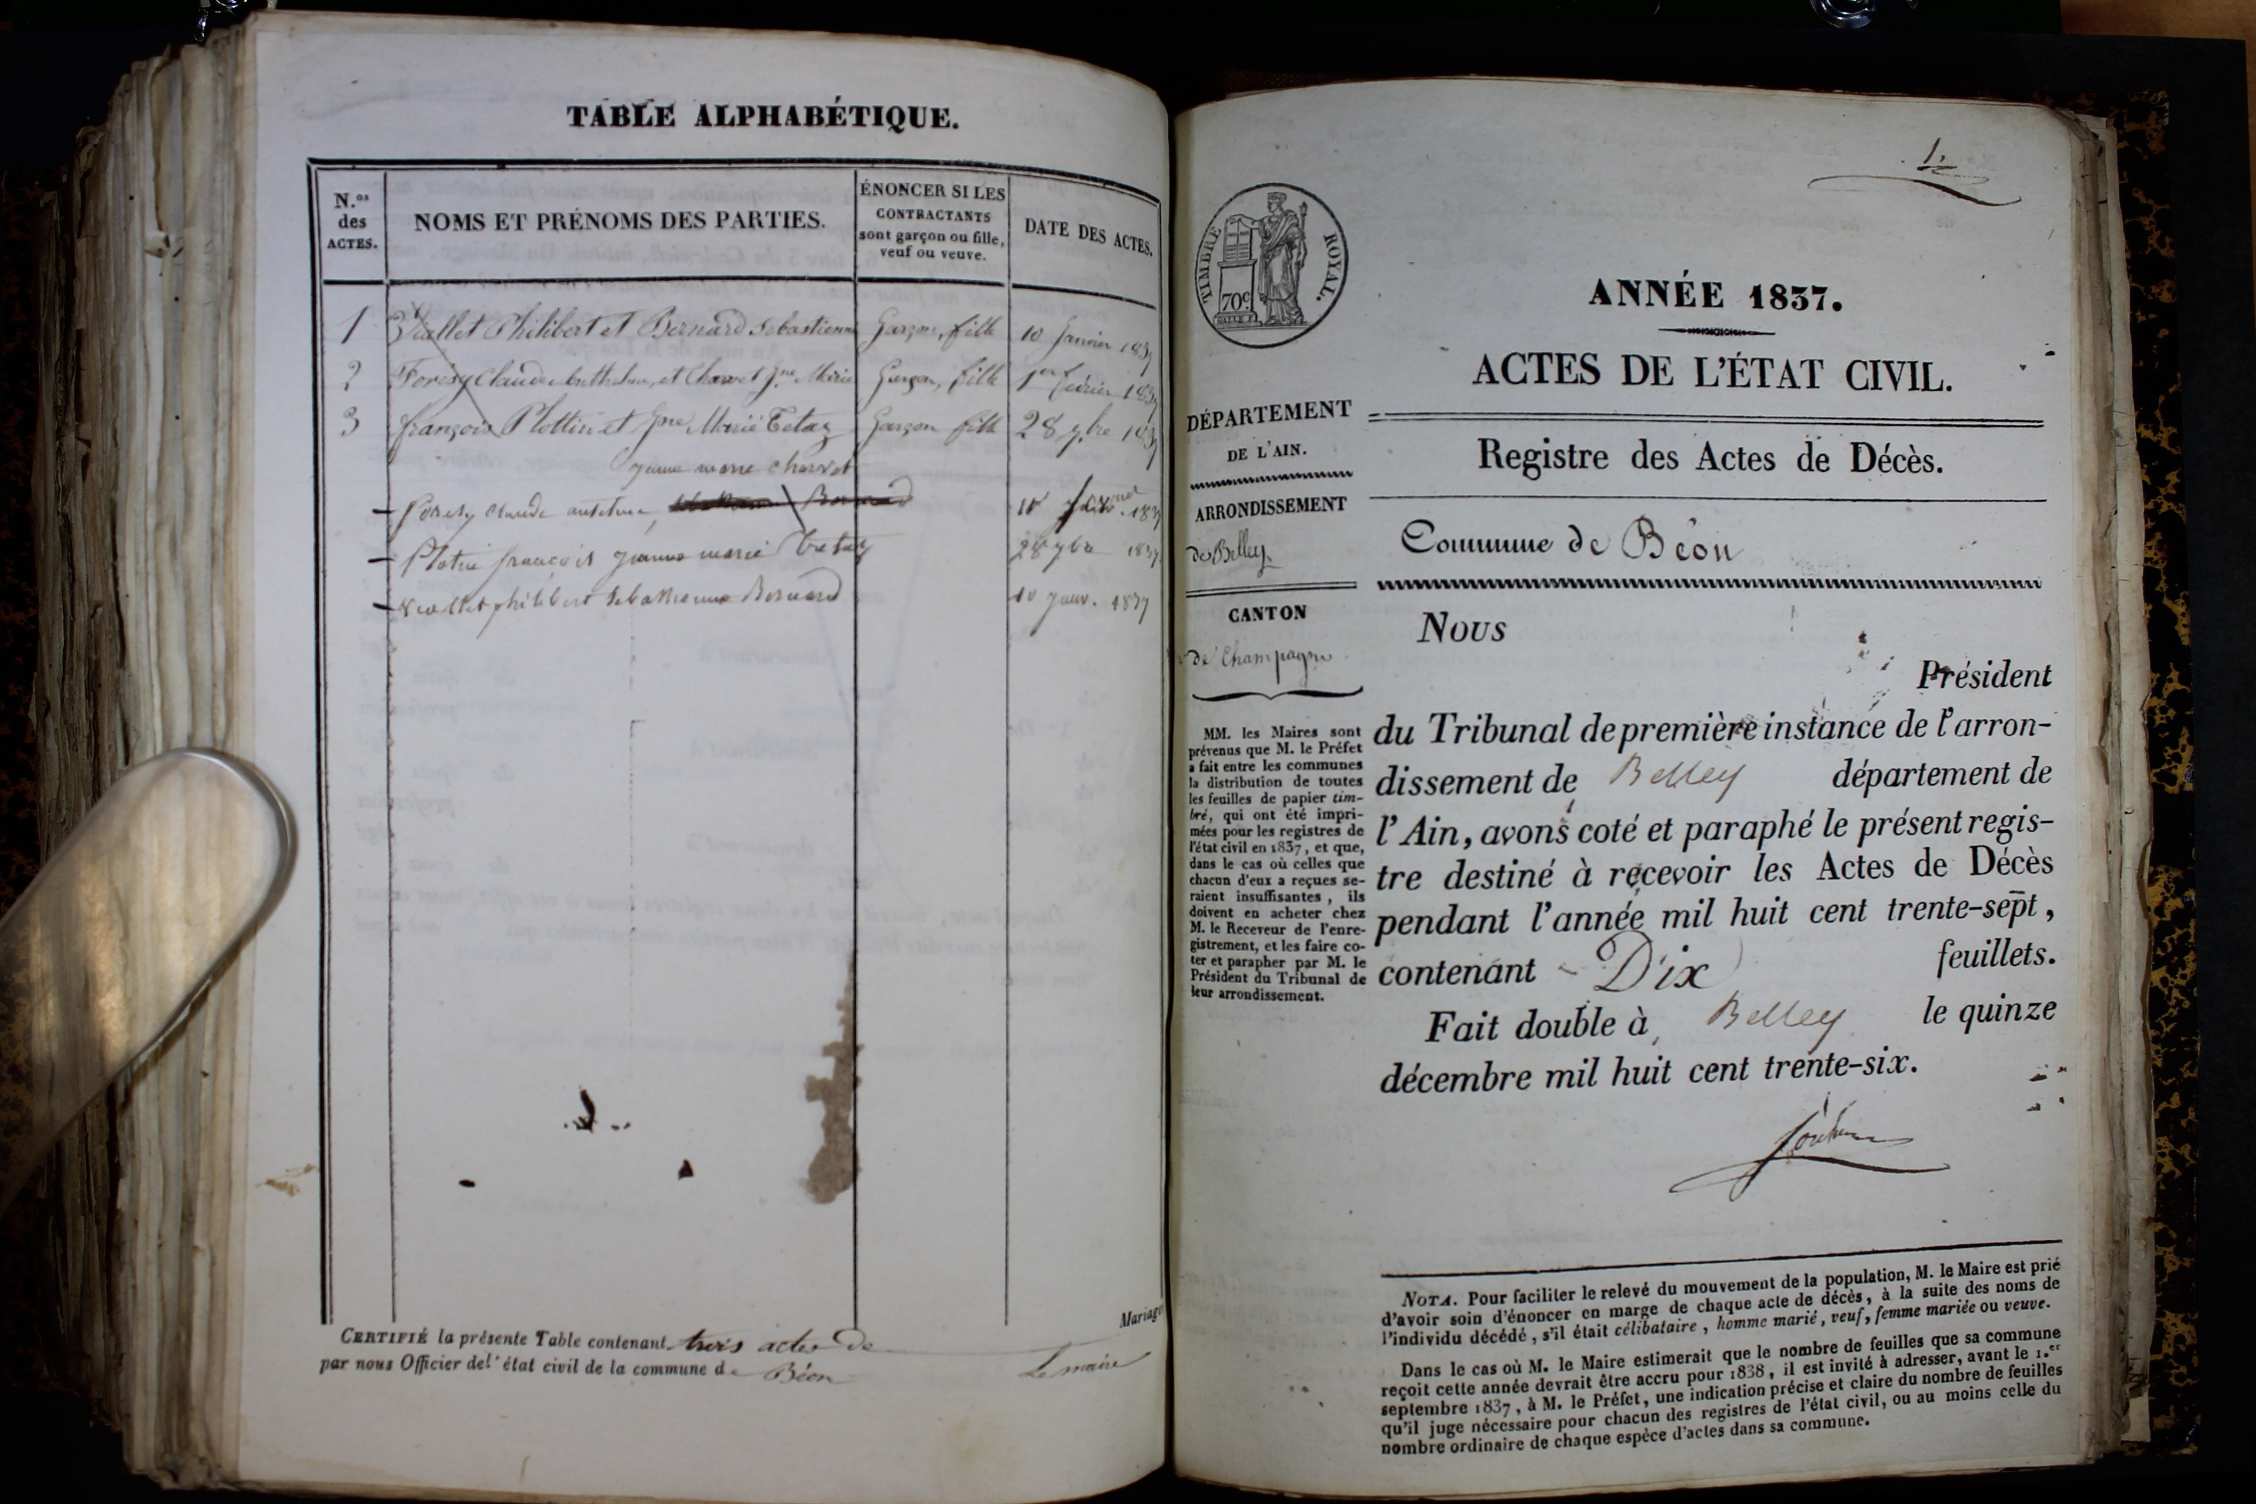 TABLE ALPHABÉTIQUE.
N.os des ACTES.
NOMS ET PRÉNOMS DES PARTIES.
ÉNONCER SI LES CONTRACTANTS sont garçon ou fille, veuf ou veuve.
DATE DES ACTES.
1 Viallet Philibert et Bernard Sebastienne Garçon, fille 10 Janvier 1837
2 Foresy Claude Anthelme, et Charvet Jne Marie Garçon, fille 1er février 1837
3 françois Plottin et Jne Marie Tetaz Garçon fille 28 9bre 1837
jeanne marie charvet
foresy claude antelme, 1837
Plotin françois jeanne marie tetaz 28 9bre 1837
viallet philibert sebastienne Bernard 10 janv. 1837
Mariage
CERTIFIÉ la présente Table contenant trois actes de
par nous Officier de l'état civil de la commune de Béon
Le maire
1.
TIMBRE ROYAL.
70c
ANNÉE 1837.
ACTES DE L'ÉTAT CIVIL.
DÉPARTEMENT
DE L'AIN.
ARRONDISSEMENT
de Belley
CANTON
de Champagne
MM. les Maires sont
prévenus que M. le Préfet
a fait entre les communes
la distribution de toutes
les feuilles de papier tim-
bré, qui ont été impri-
mées pour les registres de
l'état civil en 1837, et que,
dans le cas où celles que
chacun d'eux a reçues se-
raient insuffisantes, ils
doivent en acheter chez
M. le Receveur de l'enre-
gistrement, et les faire co-
ter et parapher par M. le
Président du Tribunal de
leur arrondissement.
Registre des Actes de Décès.
Commune de Béon
Nous
Président
du Tribunal de première instance de l'arron-
dissement de Belley département de
l'Ain, avons coté et paraphé le présent regis-
tre destiné à recevoir les Actes de Décès
pendant l'année mil huit cent trente-sept,
contenant Dix feuillets.
Fait double à Belley le quinze
décembre mil huit cent trente-six.
NOTA. Pour faciliter le relevé du mouvement de la population, M. le Maire est prié
d'avoir soin d'énoncer en marge de chaque acte de décès, à la suite des noms de
l'individu décédé, s'il était célibataire, homme marié, veuf, femme mariée ou veuve.
Dans le cas où M. le Maire estimerait que le nombre de feuilles que sa commune
reçoit cette année devrait être accru pour 1838, il est invité à adresser, avant le 1.er
septembre 1837, à M. le Préfet, une indication précise et claire du nombre de feuilles
qu'il juge nécessaire pour chacun des registres de l'état civil, ou au moins celle du
nombre ordinaire de chaque espèce d'actes dans sa commune.